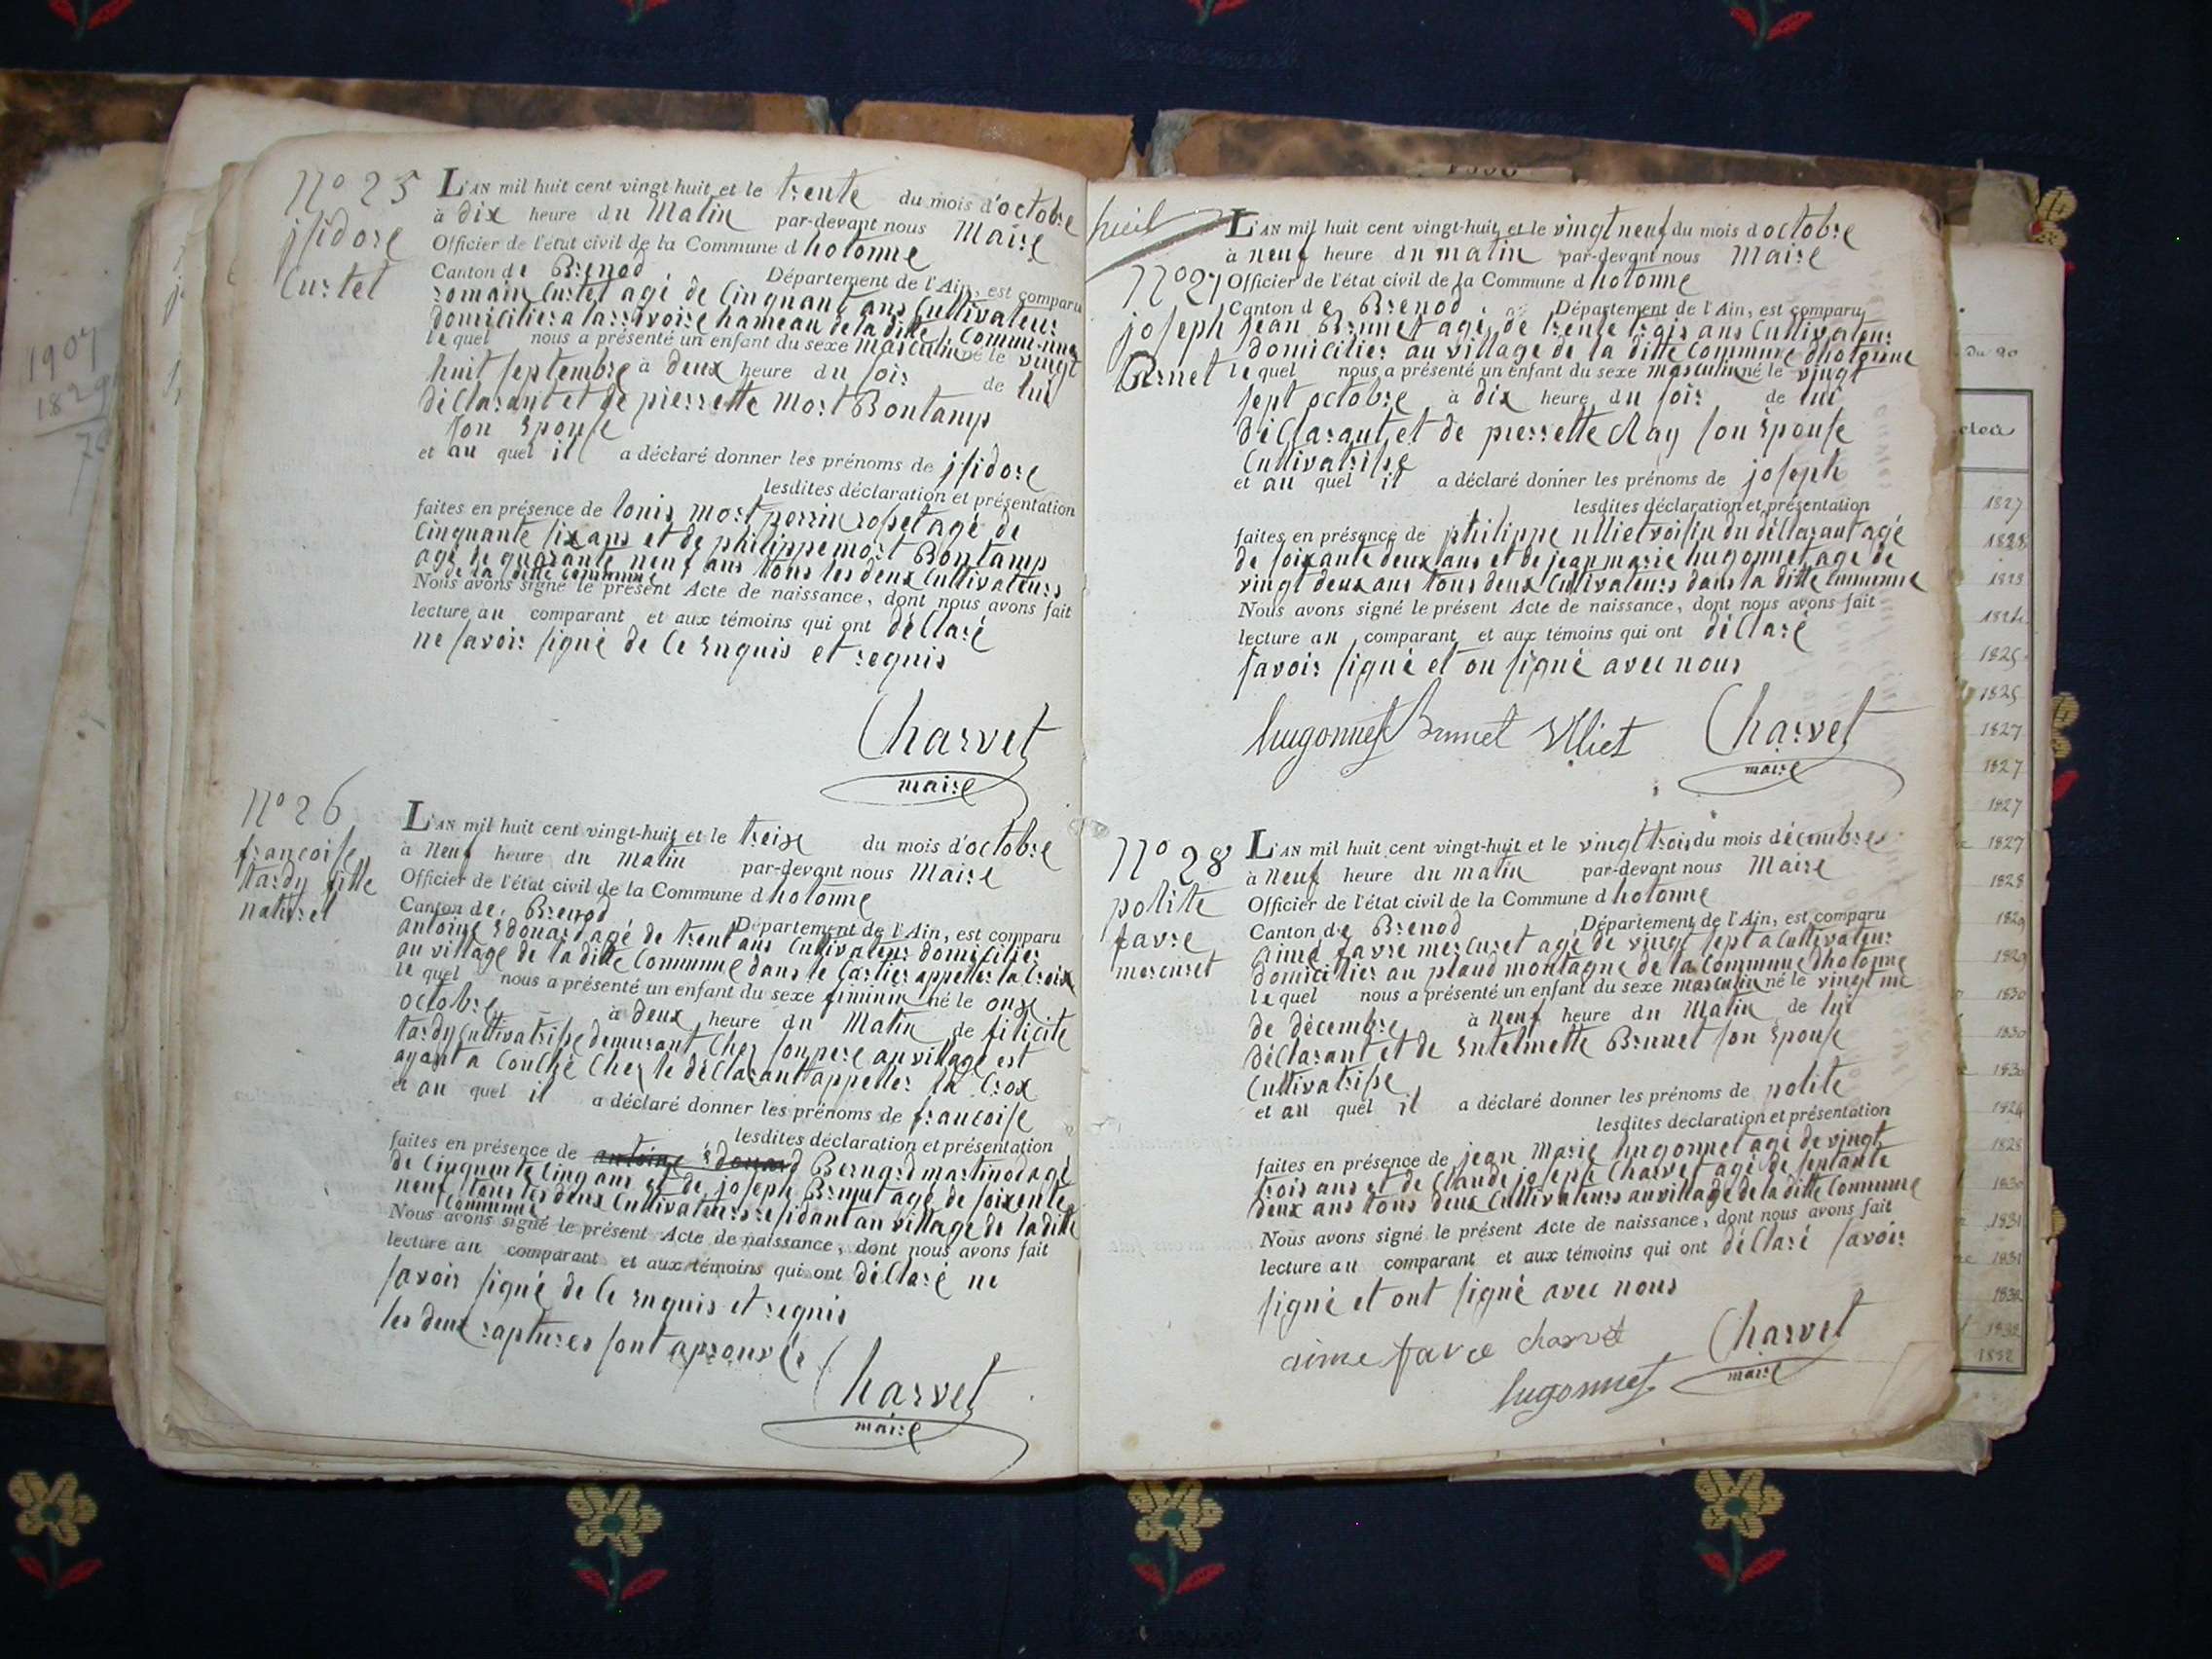 1907
1829
N° 25
isidore
Curtet
L'AN mil huit cent vingt-huit et le trente du mois d'octobre
à dix heure du Matin par-devant nous Maire
Officier de l'état civil de la Commune d hotonne
Canton de Brenod Département de l'Ain, est comparu
romain Curtet agé de Cinquant ans Cultivateur
domicilier a la rivoire hameau de la ditte Commune
lequel nous a présenté un enfant du sexe masculin né le vingt
huit septembre à deux heure du soir de lui
déclarant et de pierrette Mort Bontamp
son Epouse
et au quel il a déclaré donner les prénoms de isidore
lesdites déclaration et présentation
faites en présence de louis mort perrin rosset agé de
Cinquante six ans et de philippe mort Bontamp
agé de quarante neuf ans tous les deux Cultivateurs
de la ditte Commune
Nous avons signé le présent Acte de naissance, dont nous avons fait
lecture au comparant et aux témoins qui ont déclaré
ne savoir signé de Ce Enquis et requis
Charvet
maire
N° 26
francoise
tardy fille
naturel
L'AN mil huit cent vingt-huit et le treize du mois d'octobre
à Neuf heure du Matin par-devant nous Maire
Officier de l'état civil de la Commune d hotonne
Canton de Brenod Département de l'Ain, est comparu
antoine Edouard agé de trent ans Cultivateur domicilier
au village de la ditte Commune dans le Cartier appeller la Croix
le quel nous a présenté un enfant du sexe féminin né le onze
octobre à deux heure du Matin de félicité
tardy Cultivatrisse demurant Chez son pere au village est
ayant a Couché Chez le déclarant appeller la Crox
et au quel il a déclaré donner les prénoms de francoise
lesdites déclaration et présentation
faites en présence de antoine Edouard Bernard martinod agé
de Cinquente Cinq ans et de joseph Brunet agé de soixente
neuf tous les deux Cultivateurs residant au village de la ditte
Commune
Nous avons signé le présent Acte de naissance, dont nous avons fait
lecture au comparant et aux témoins qui ont déclaré ne
savoir signé de Ce Enquis et requis
les deux raptures sont aprouvés
Charvet
maire
N° 27
joseph
Brnet
L'AN mil huit cent vingt-huit et le vingt neuf du mois d octobre
à neuf heure du matin par-devant nous Maire
Officier de l'état civil de la Commune d hotonne
Canton de Brenod Département de l'Ain, est comparu
jean Brunet agé de trente trois ans Cultivateur
domicilier au village de la ditte Commune dhotonne
le quel nous a présenté un enfant du sexe masculin né le vingt
sept octobre à dix heure du soir de lui
déclarant et de pierrette Ray son Epouse
Cultivatrisse
et au quel il a déclaré donner les prénoms de joseph
lesdites déclaration et présentation
faites en présence de philippe ulliet voisin du déclarant agé
de soixante deux ans et de jean marie hugonnet agé de
vingt deux ans tous deux Cultivateurs dans la ditte Commune
Nous avons signé le présent Acte de naissance, dont nous avons fait
lecture au comparant et aux témoins qui ont déclaré
savoir signé et on signé avec nous
hugonnet Brunet Ulliet Charvet
maire
N° 28
polite
favre
mercuret
L'AN mil huit cent vingt-huit et le vingt trois du mois décembre
à Neuf heure du matin par-devant nous Maire
Officier de l'état civil de la Commune d hotonne
Canton de Brenod Département de l'Ain, est comparu
aimé favre mercuret agé de vingt sept a Cultivateur
domicilier au plaud montagne de la Commune dhotonne
le quel nous a présenté un enfant du sexe masculin né le vingt une
de décembre à neuf heure du Matin de lui
déclarant et de Entelmette Brunet son Epouse
Cultivatrisse
et au quel il a déclaré donner les prénoms de polite
lesdites déclaration et présentation
faites en présence de jean Marie hugonnet agé de vingt
trois ans et de Claude joseph Charvet agé de septante
deux ans tous deux Cultivateurs au village de la ditte Commune
Nous avons signé le présent Acte de naissance, dont nous avons fait
lecture au comparant et aux témoins qui ont déclaré savoir
signé et ont signé avec nous
aime favre charvet Charvet
hugonnet maire
du 20
1827
1828
1823
1824
1825
1825
1827
1827
1827
1827
1828
1829
1829
1830
1830
1830
1824
1828
1830
1831
1831
1832
1832
1832